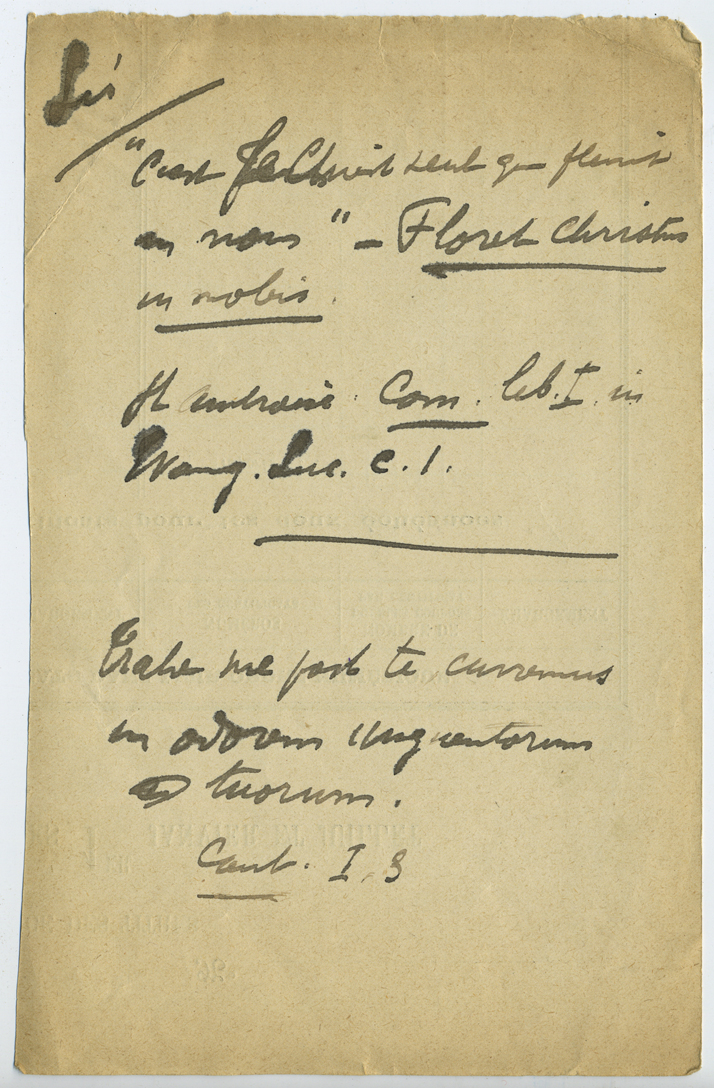 "C'est Je Christ seul qui fleurit
en nous" – Floret Christus
in nobis.
St Ambroise. Com. lib. I. in
Evang. Luc. c. 1.
Trahe me post te curremus
in odorem unguentorum
tuorum.
Cant. I, 3